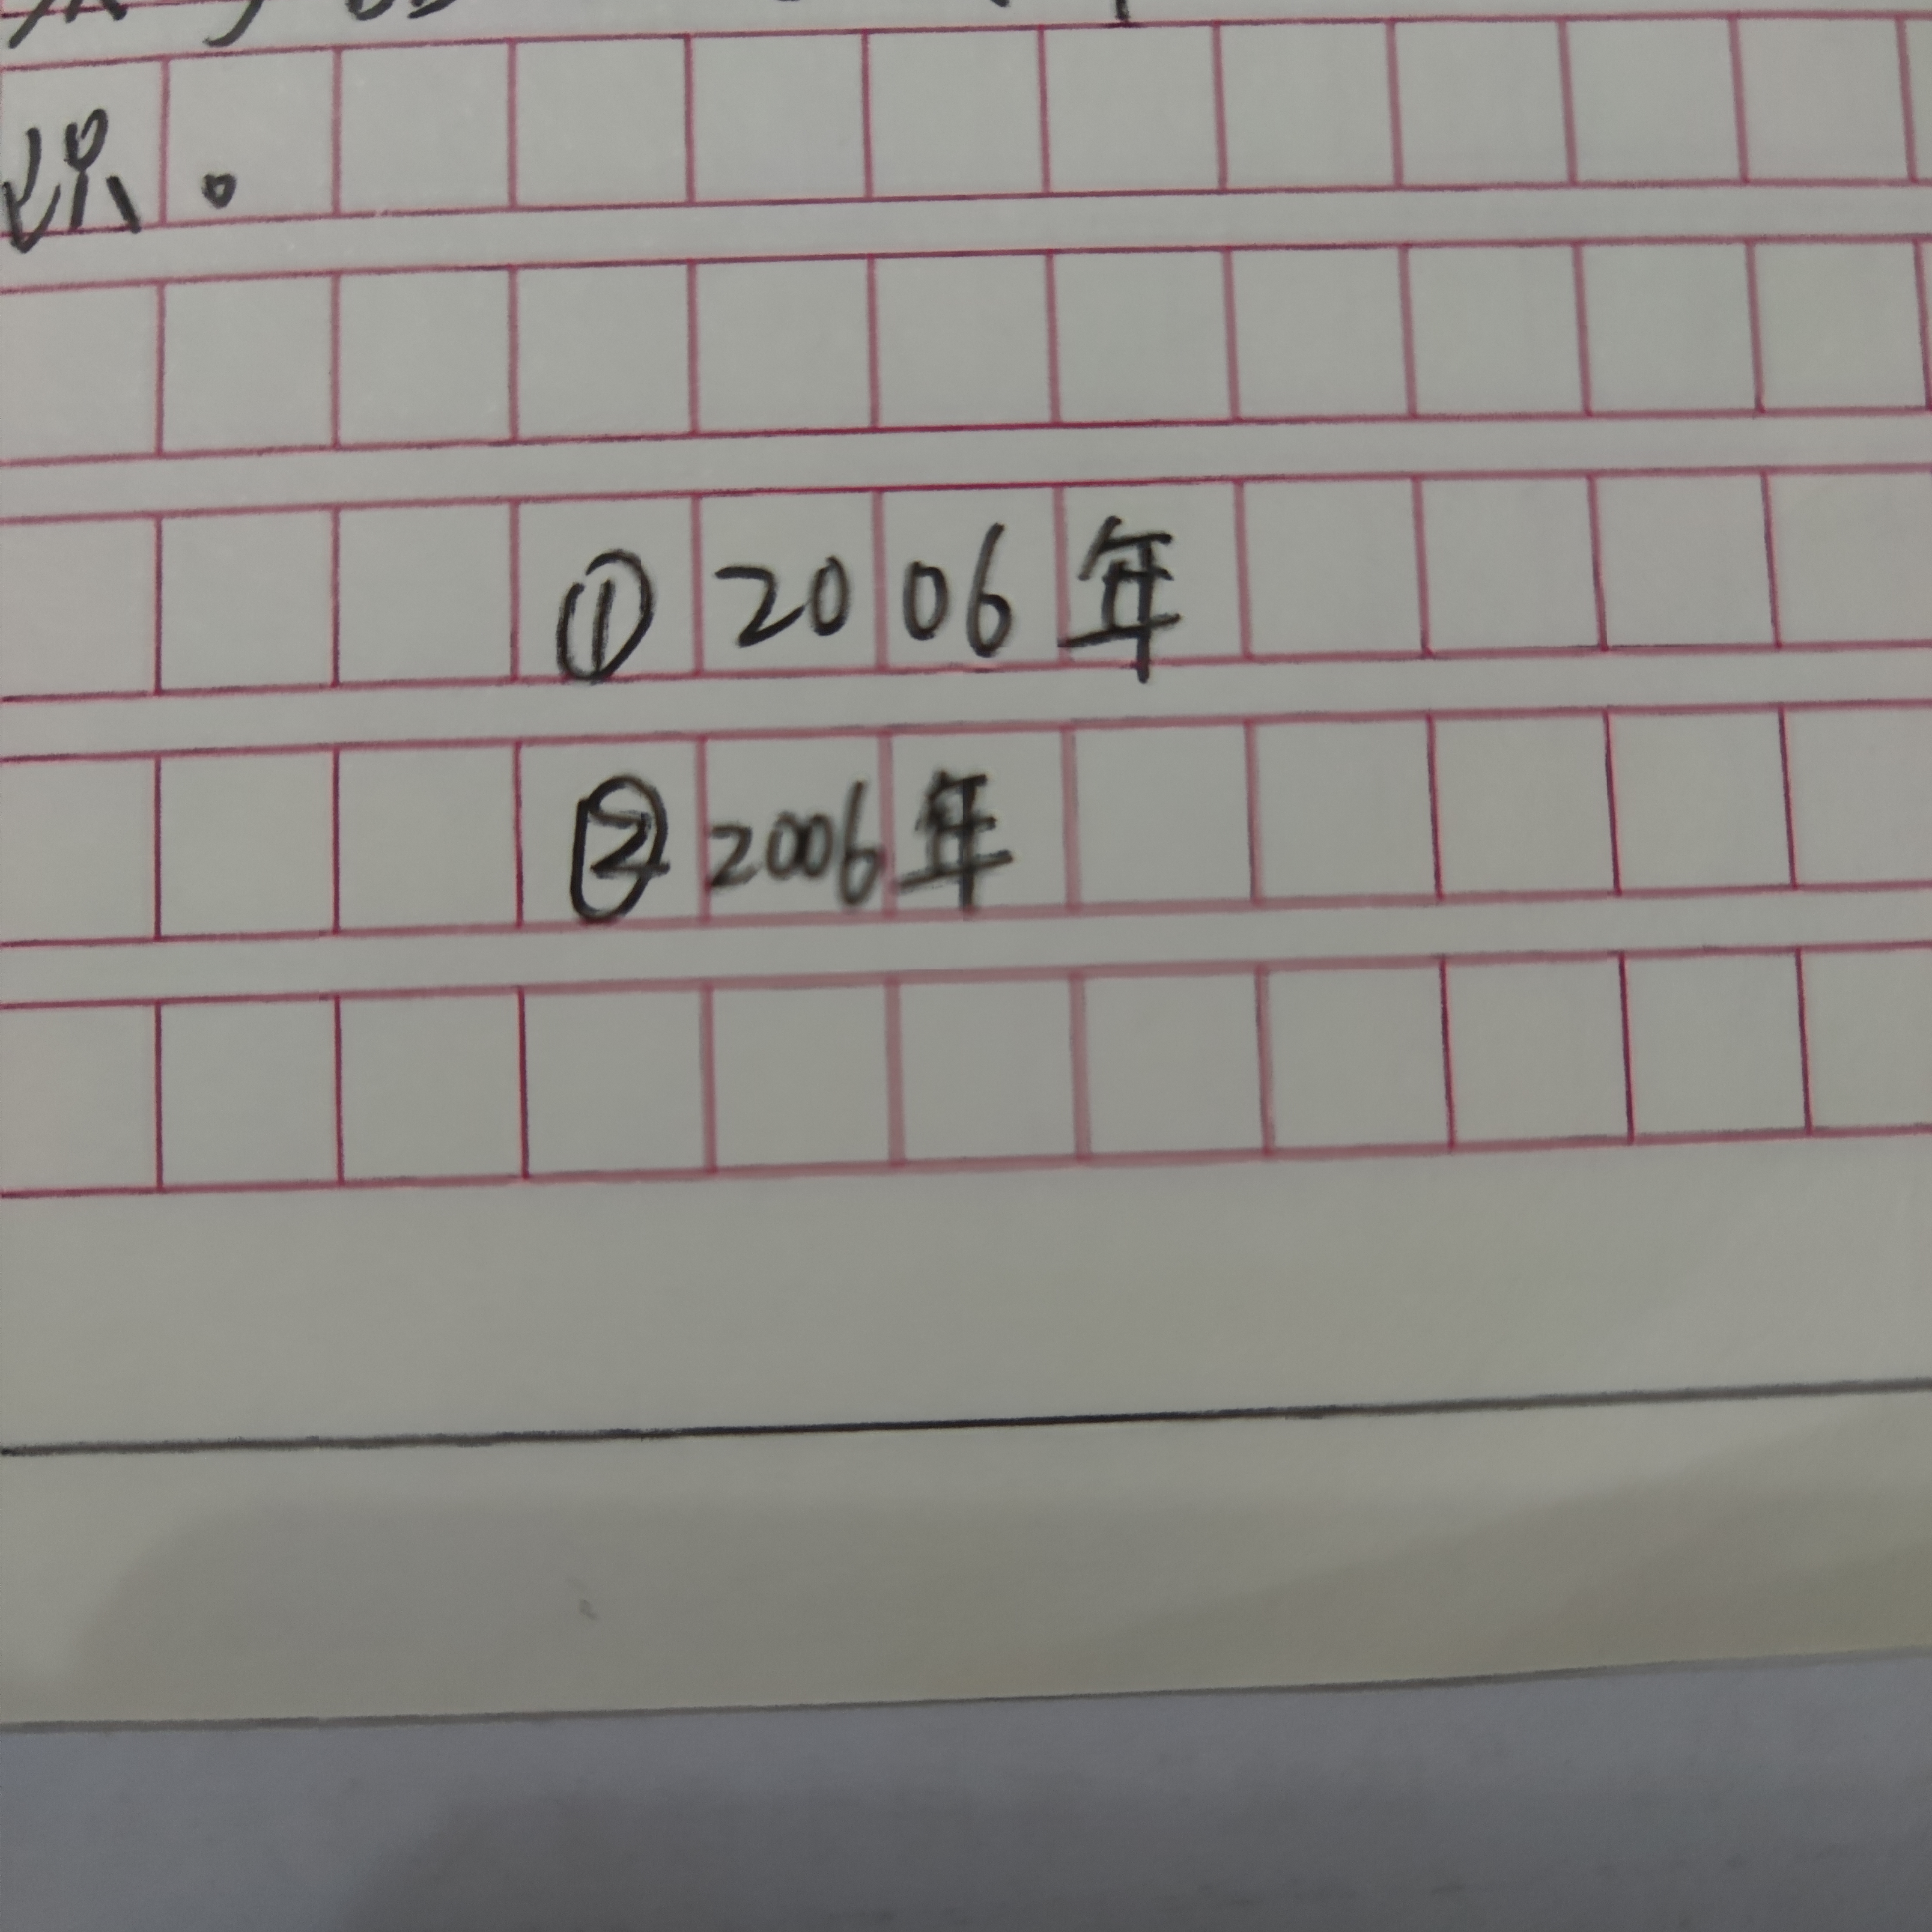 识。
①2006年
②2006年